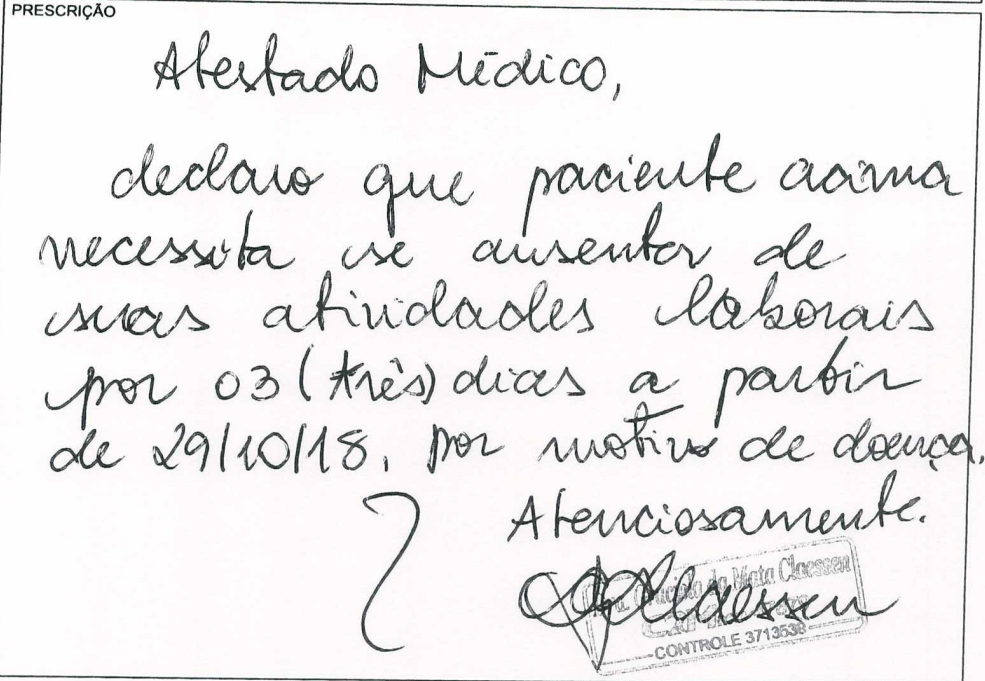 PRESCRIÇÃO
Atestado Médico,
declaro que paciente acima
necessita se ausentar de
suas atividades laborais
por 03 (três) dias a partir
de 29/10/18, por motivo de doença.
Atenciosamente.
da Mata Claessen
CONTROLE 3713538